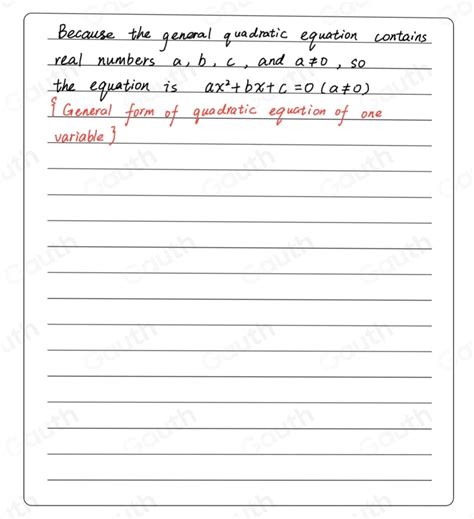 Because the general quadratic equation contains
real numbers a, b, c, and a≠0, so
the equation is ax²+bx+c=0 (a≠0)
{General form of quadratic equation of one
variable}